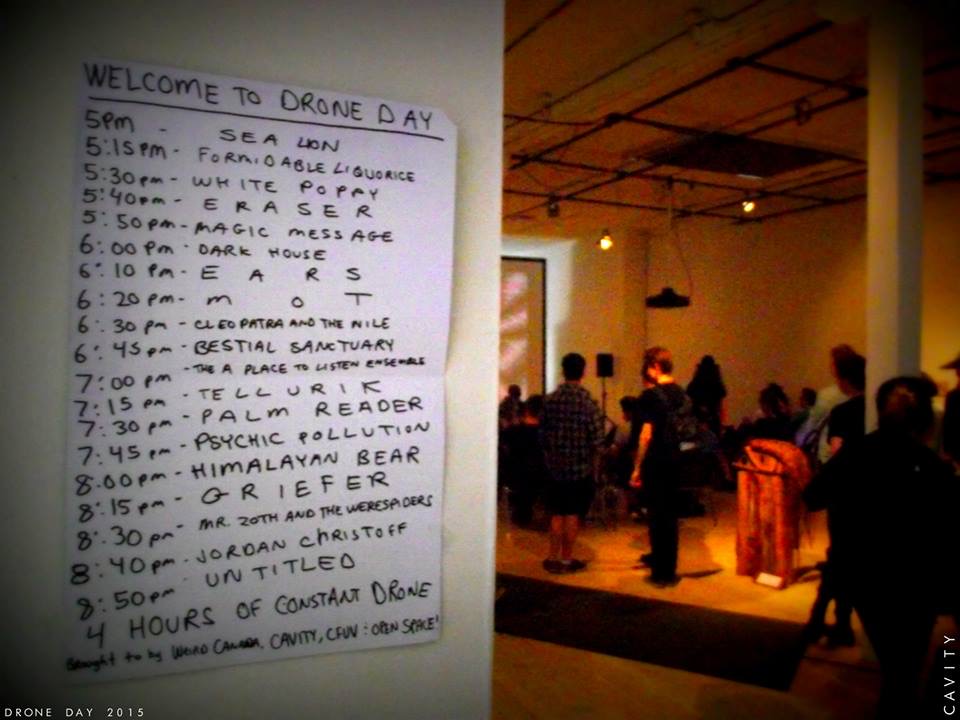 WELCOME TO DRONE DAY
5pm - SEA LION
5:15pm - FORMIDABLE LIQUORICE
5:30pm - WHITE POPPY
5:40pm - ERASER
5:50pm - MAGIC MESSAGE
6:00pm - DARK HOUSE
6:10pm - E A R S
6:20pm - m o T
6:30pm - CLEOPATRA AND THE NILE
6:45pm - BESTIAL SANCTUARY
7:00pm - THE A PLACE TO LISTEN ENSEMBLE
7:15pm - TELLURIK
7:30pm - PALM READER
7:45pm - PSYCHIC POLLUTION
8:00pm - HIMALAYAN BEAR
8:15pm - GRIEFER
8:30pm - MR. ZOTH AND THE WERESPIDERS
8:40pm - JORDAN CHRISTOFF
8:50pm - UNTITLED
4 HOURS OF CONSTANT DRONE
Brought to by WEIRD CANADA, CAVITY, CFUV : OPEN SPACE!
DRONE DAY 2015
CAVITY